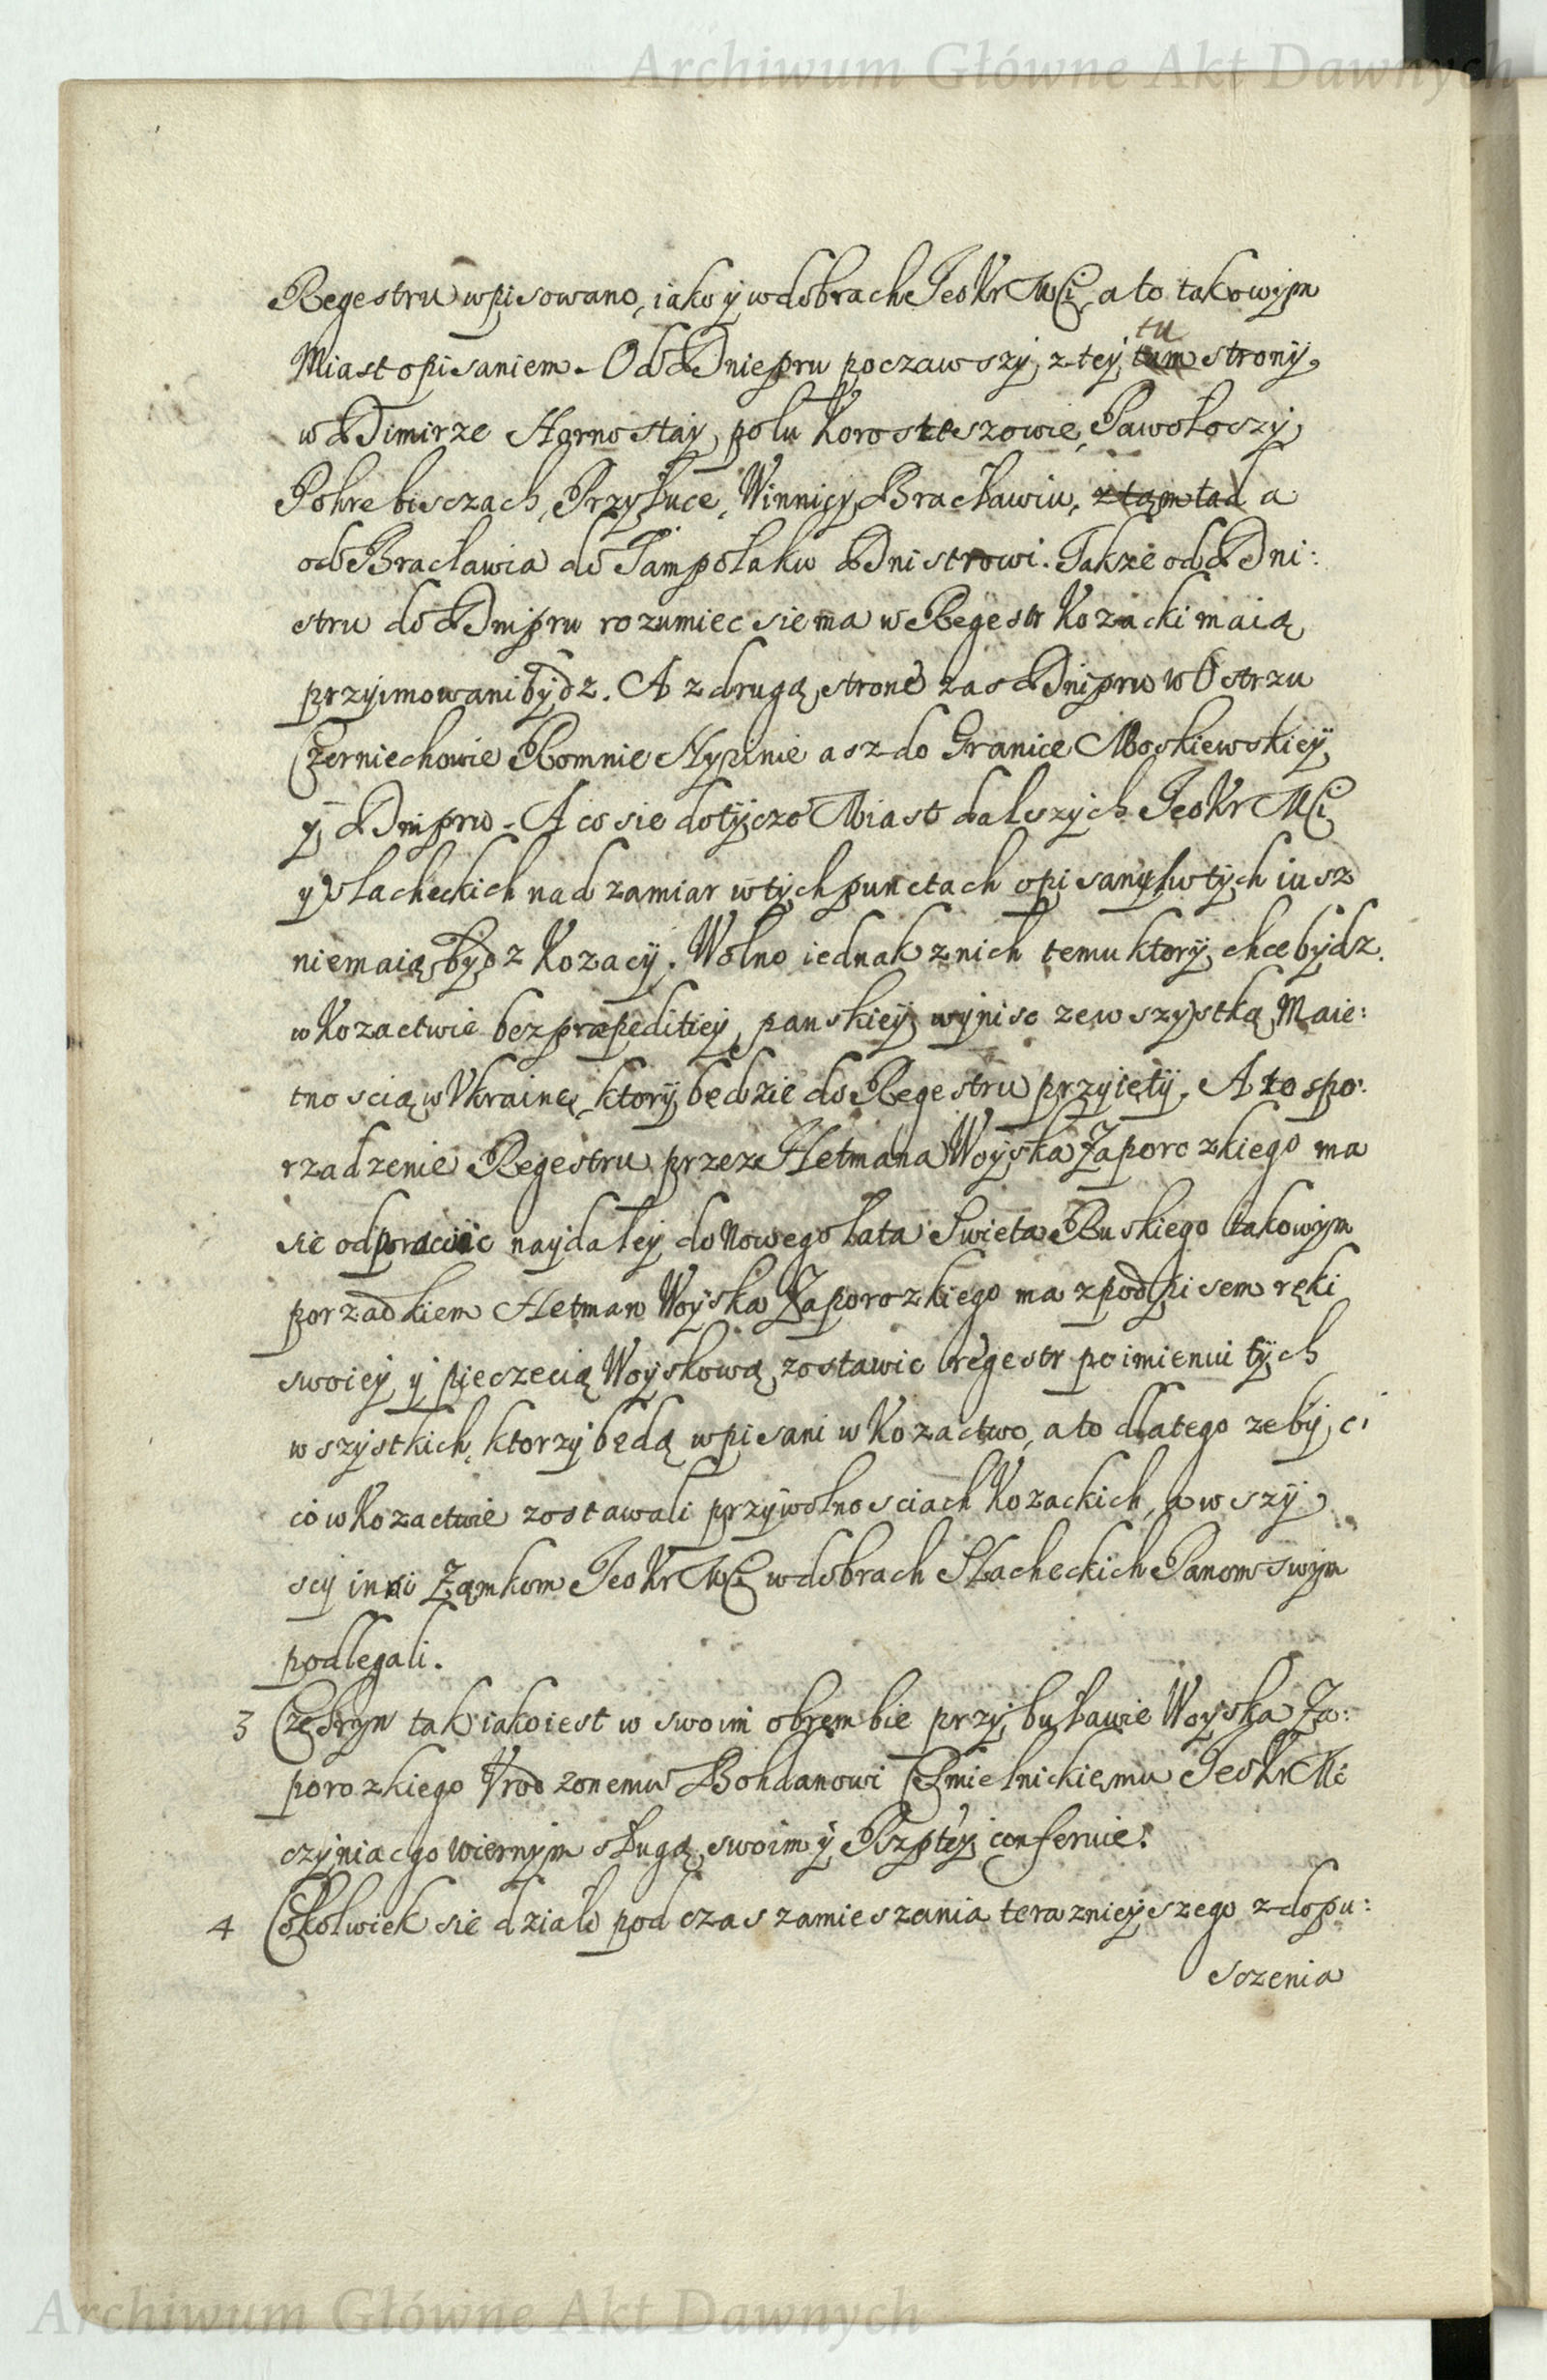 Archiwum Główne Akt Dawnych
Regestru wpisowano, iako y w dobrach Jeo Kr Mći, a to takowym
tu
Miast opisaniem. Od Dniepru poczawszy, z tey tam strony,
w Dimirze Hornostay, polu Korosteszowie, Pawołoszy,
Pohrebisczach, Przyłuce, Winnicy, Bracławiu, z tąmtad a
od Bracławia do Jampolaku Dnistrowi. Takze od Dni:
stru do Dnipru rozumiec sie ma w Regestr Kozacki maią
przyimowani bydz. A z drugą strone zas Dnipru w Ostrzu
Czerniechowie Romnie Nyzinie asz do Granice Moskiewskiey
y Dnipru. A co sie dotycze Miast dalszych Jeo Kr Mći
y slacheckich nad zamiar w tych punctach opisanych w tych iusz
nie maią bydz Kozacy. Wolno iednak z nich temu ktory chce bydz
w Kozactwie bez præpeditiey panskiey wynisc ze wszystką Maie:
tnoscią w Ukraine, ktory będzie do Regestru przyięty. A to spo:
rzadzenie Regestru przez Hetmana Woyska Zaporozkiego ma
sie odprawic naydaley do Nowego Lata Swieta Ruskiego takowym
porzadkiem Hetman Woyska Zaporozkiego ma z podpisem ręki
swoiey y pieczecią Woyskową zostawic regestr poimieniu tych
wszystkich, ktorzy będą wpisani w Kozactwo, a to dlatego zeby ci
co w Kozactwie zostawali przy wolnosciach Kozackich, a wszy
scy inni Zamkom Jeo Kr Mći w dobrach Slacheckich Panom swym
podlegali.
3 Czehryn tak iako iest w swoim obrembie przy buławie Woyska Za:
porozkiego Urodzonemu Bohdanowi Chmielnickiemu Jeo Kr Mć
czyniac go wiernym sługą swoim y Rzptey conferuie.
4 Cokolwiek sie działo pod czas zamieszania teraznieyszego z dopu:
sczenia
Archiwum Główne Akt Dawnych